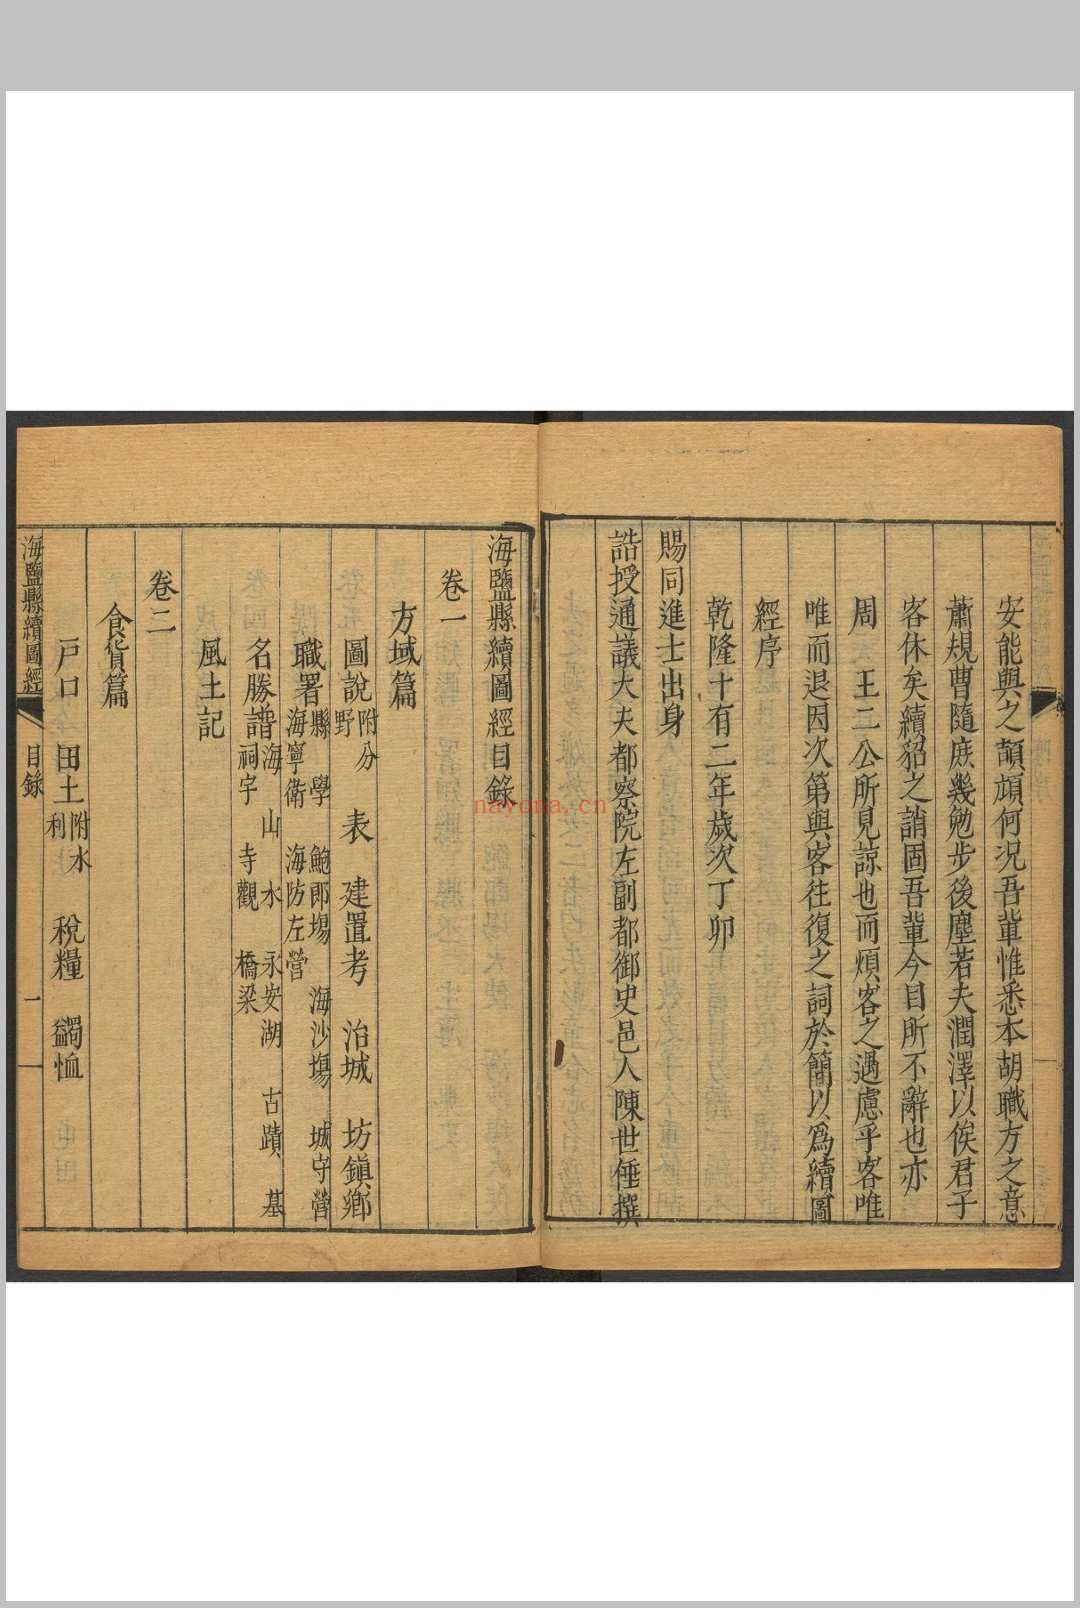 安能與之頡頏何況吾輩惟悉本胡職方之意
蕭規曹隨庶幾勉步後塵若夫潤澤以俟君子
客休矣續貂之誚固吾輩今日所不辭也亦
周王二公所見諒也而煩客之過慮乎客唯
唯而退因次第與客往復之詞於簡以爲續圖
經序
乾隆十有二年歲次丁卯
賜同進士出身
誥授通議大夫都察院左副都御史邑人陳世倕撰
海鹽縣續圖經目錄
卷一
方域篇
圖說附分野 表 建置考 治城 坊鎮鄉
職署縣學 鮑郎場 海沙場 城守營 海寧衛 海防左營
名勝譜海山水 永安湖 古蹟 墓 祠宇 寺觀 橋梁
風土記
卷二
食貨篇
戶口 田土附水利 稅糧 蠲恤
海鹽縣續圖經 目錄 一
nayona.cn